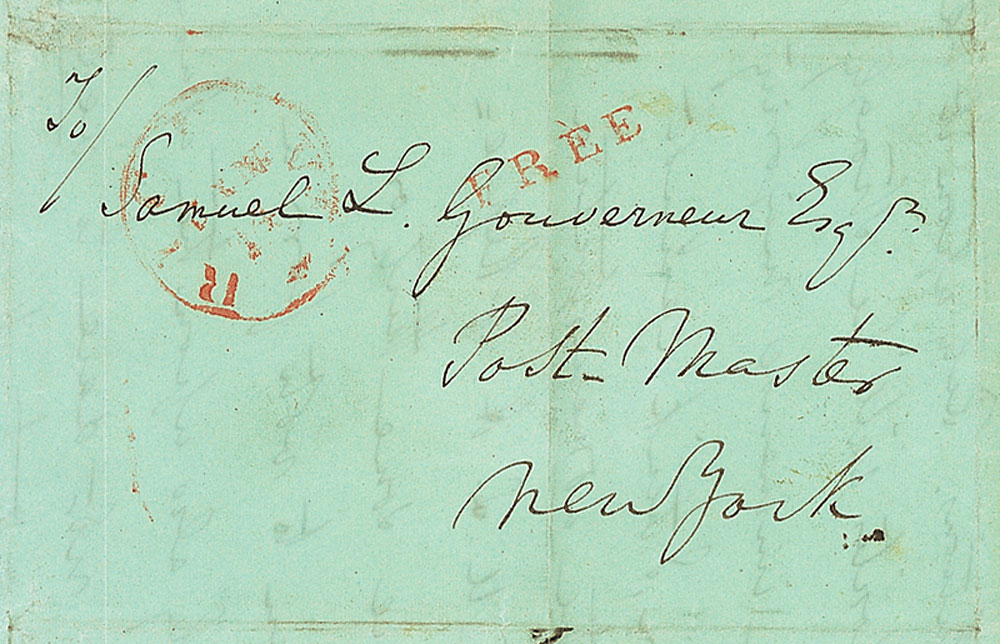 To/
FREE
Samuel L. Gouverneur Esqr.
11
Post-Master
New York.